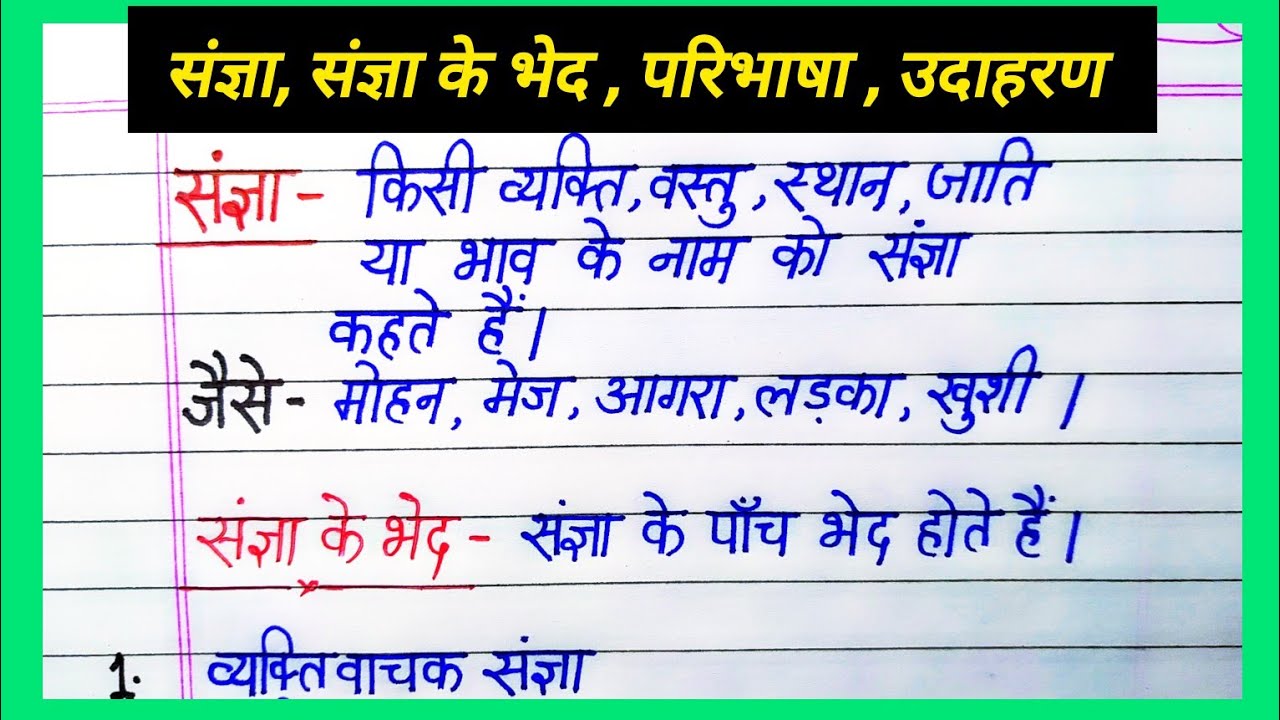 संज्ञा, संज्ञा के भेद , परिभाषा , उदाहरण
संज्ञा - किसी व्यक्ति, वस्तु, स्थान, जाति
या भाव के नाम को संज्ञा
कहते हैं।
जैसे - मोहन, मेज, आगरा, लड़का, खुशी ।
संज्ञा के भेद - संज्ञा के पाँच भेद होते हैं।
1. व्यक्तिवाचक संज्ञा